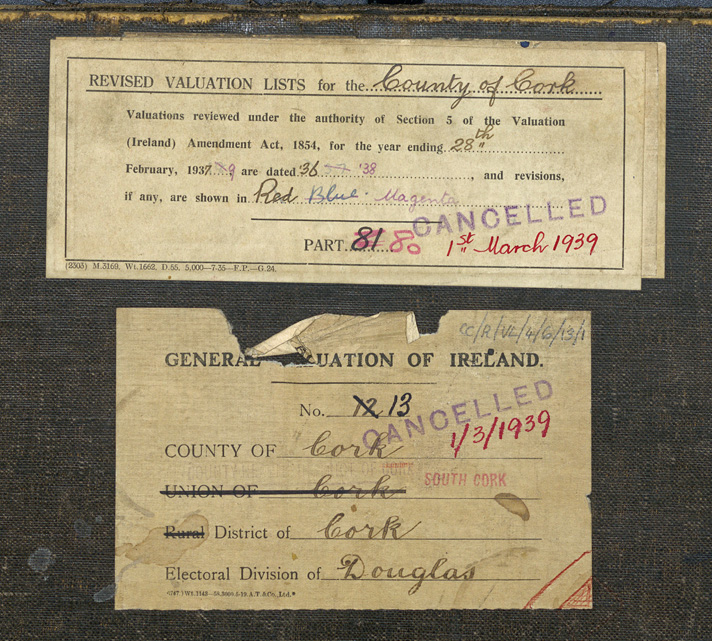 REVISED VALUATION LISTS for the County of Cork
Valuations reviewed under the authority of Section 5 of the Valuation
(Ireland) Amendment Act, 1854, for the year ending 28th
February, 1937 9 are dated 36 '38, and revisions,
if any, are shown in Red Blue. Magenta
CANCELLED
PART 81 80
1st March 1939
(2303) M.3169. Wt.1662. D.55. 5,000—7-35—F.P.—G.24.
CC/R/VL/4/6/13/1
GENERAL VALUATION OF IRELAND.
No. 12 13
CANCELLED
1/3/1939
COUNTY OF Cork
UNION OF Cork
SOUTH CORK
Rural District of Cork
Electoral Division of Douglas